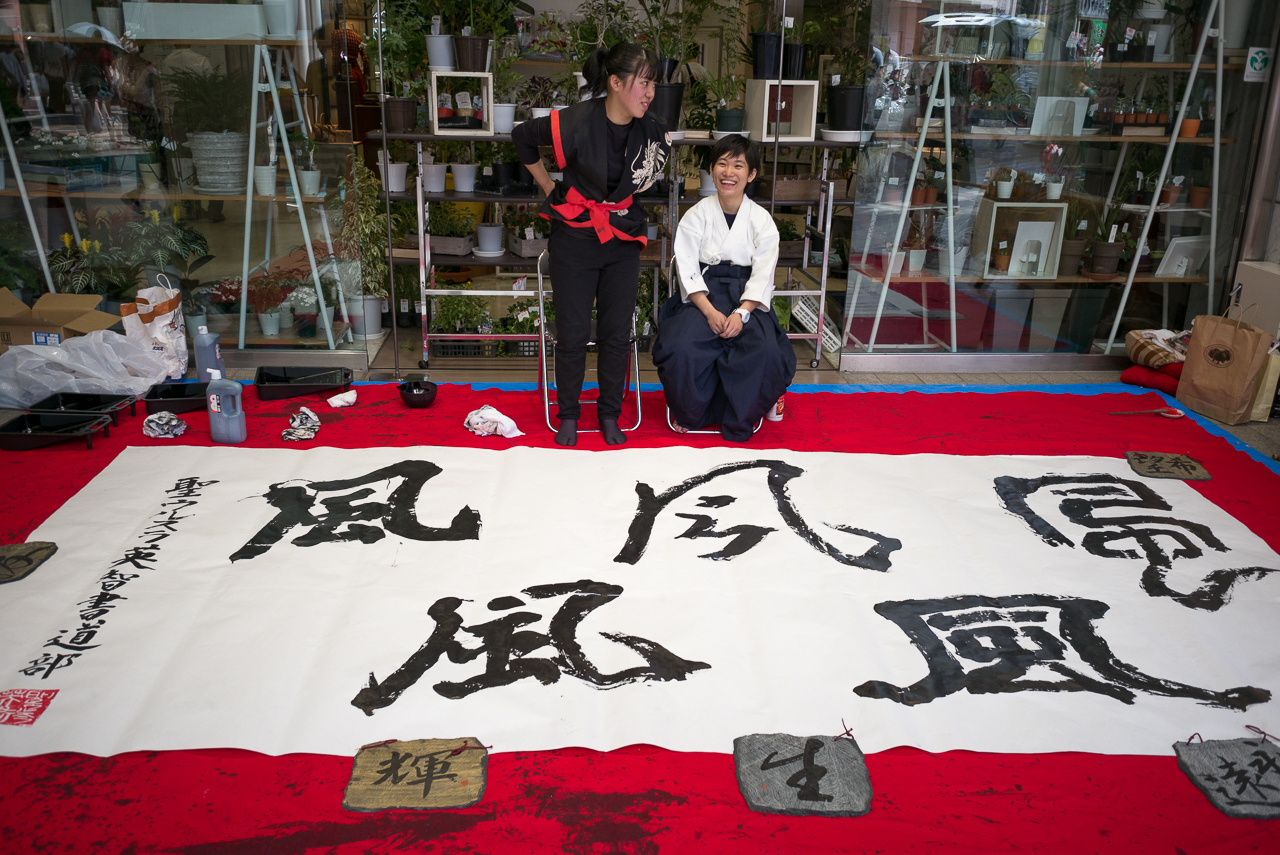 風
風
風
風
風
聖ウルスラ英智書道部
輝
生